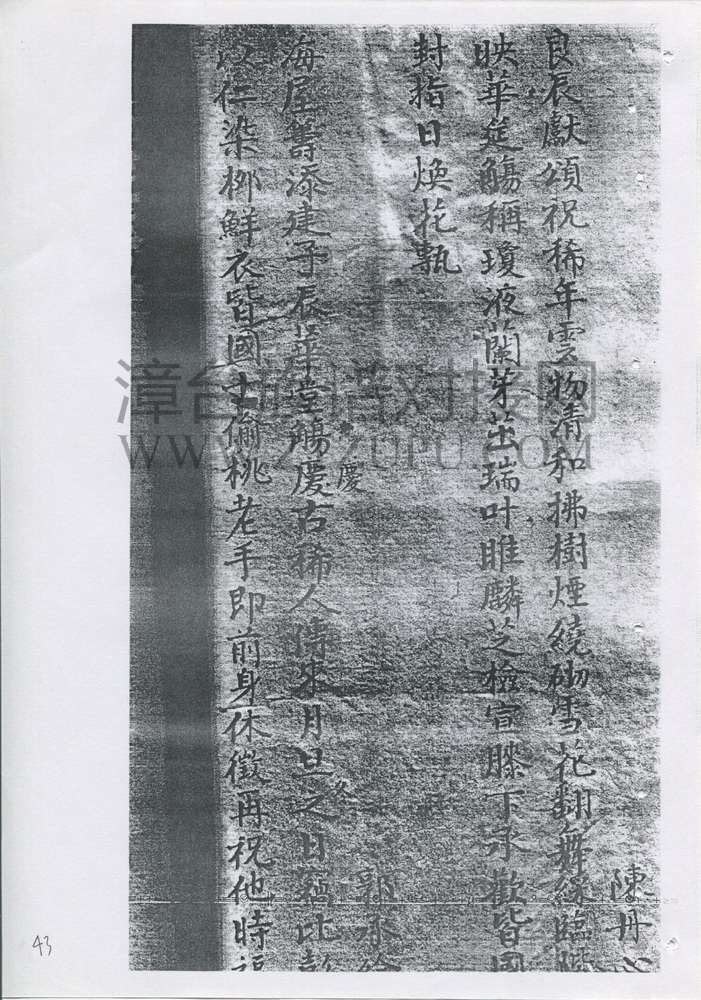 陳丹
良辰獻頌祝稀年雲物清和拂樹煙繞砌雪花翻舞綵臨階
映華筵觴稱瓊液蘭芽茁瑞叶睢麟芝檢宣膝下承歡皆國
封指日煥花甎
郭承
海屋籌添建子辰華堂觴慶古稀人傳來月旦之日窩比彭
慶
冬
以仁梁栁鮮衣皆國士偷桃老手即前身休徵再祝他時福
漳台族谱对接网
WWW.ZTZUPU.COM
43